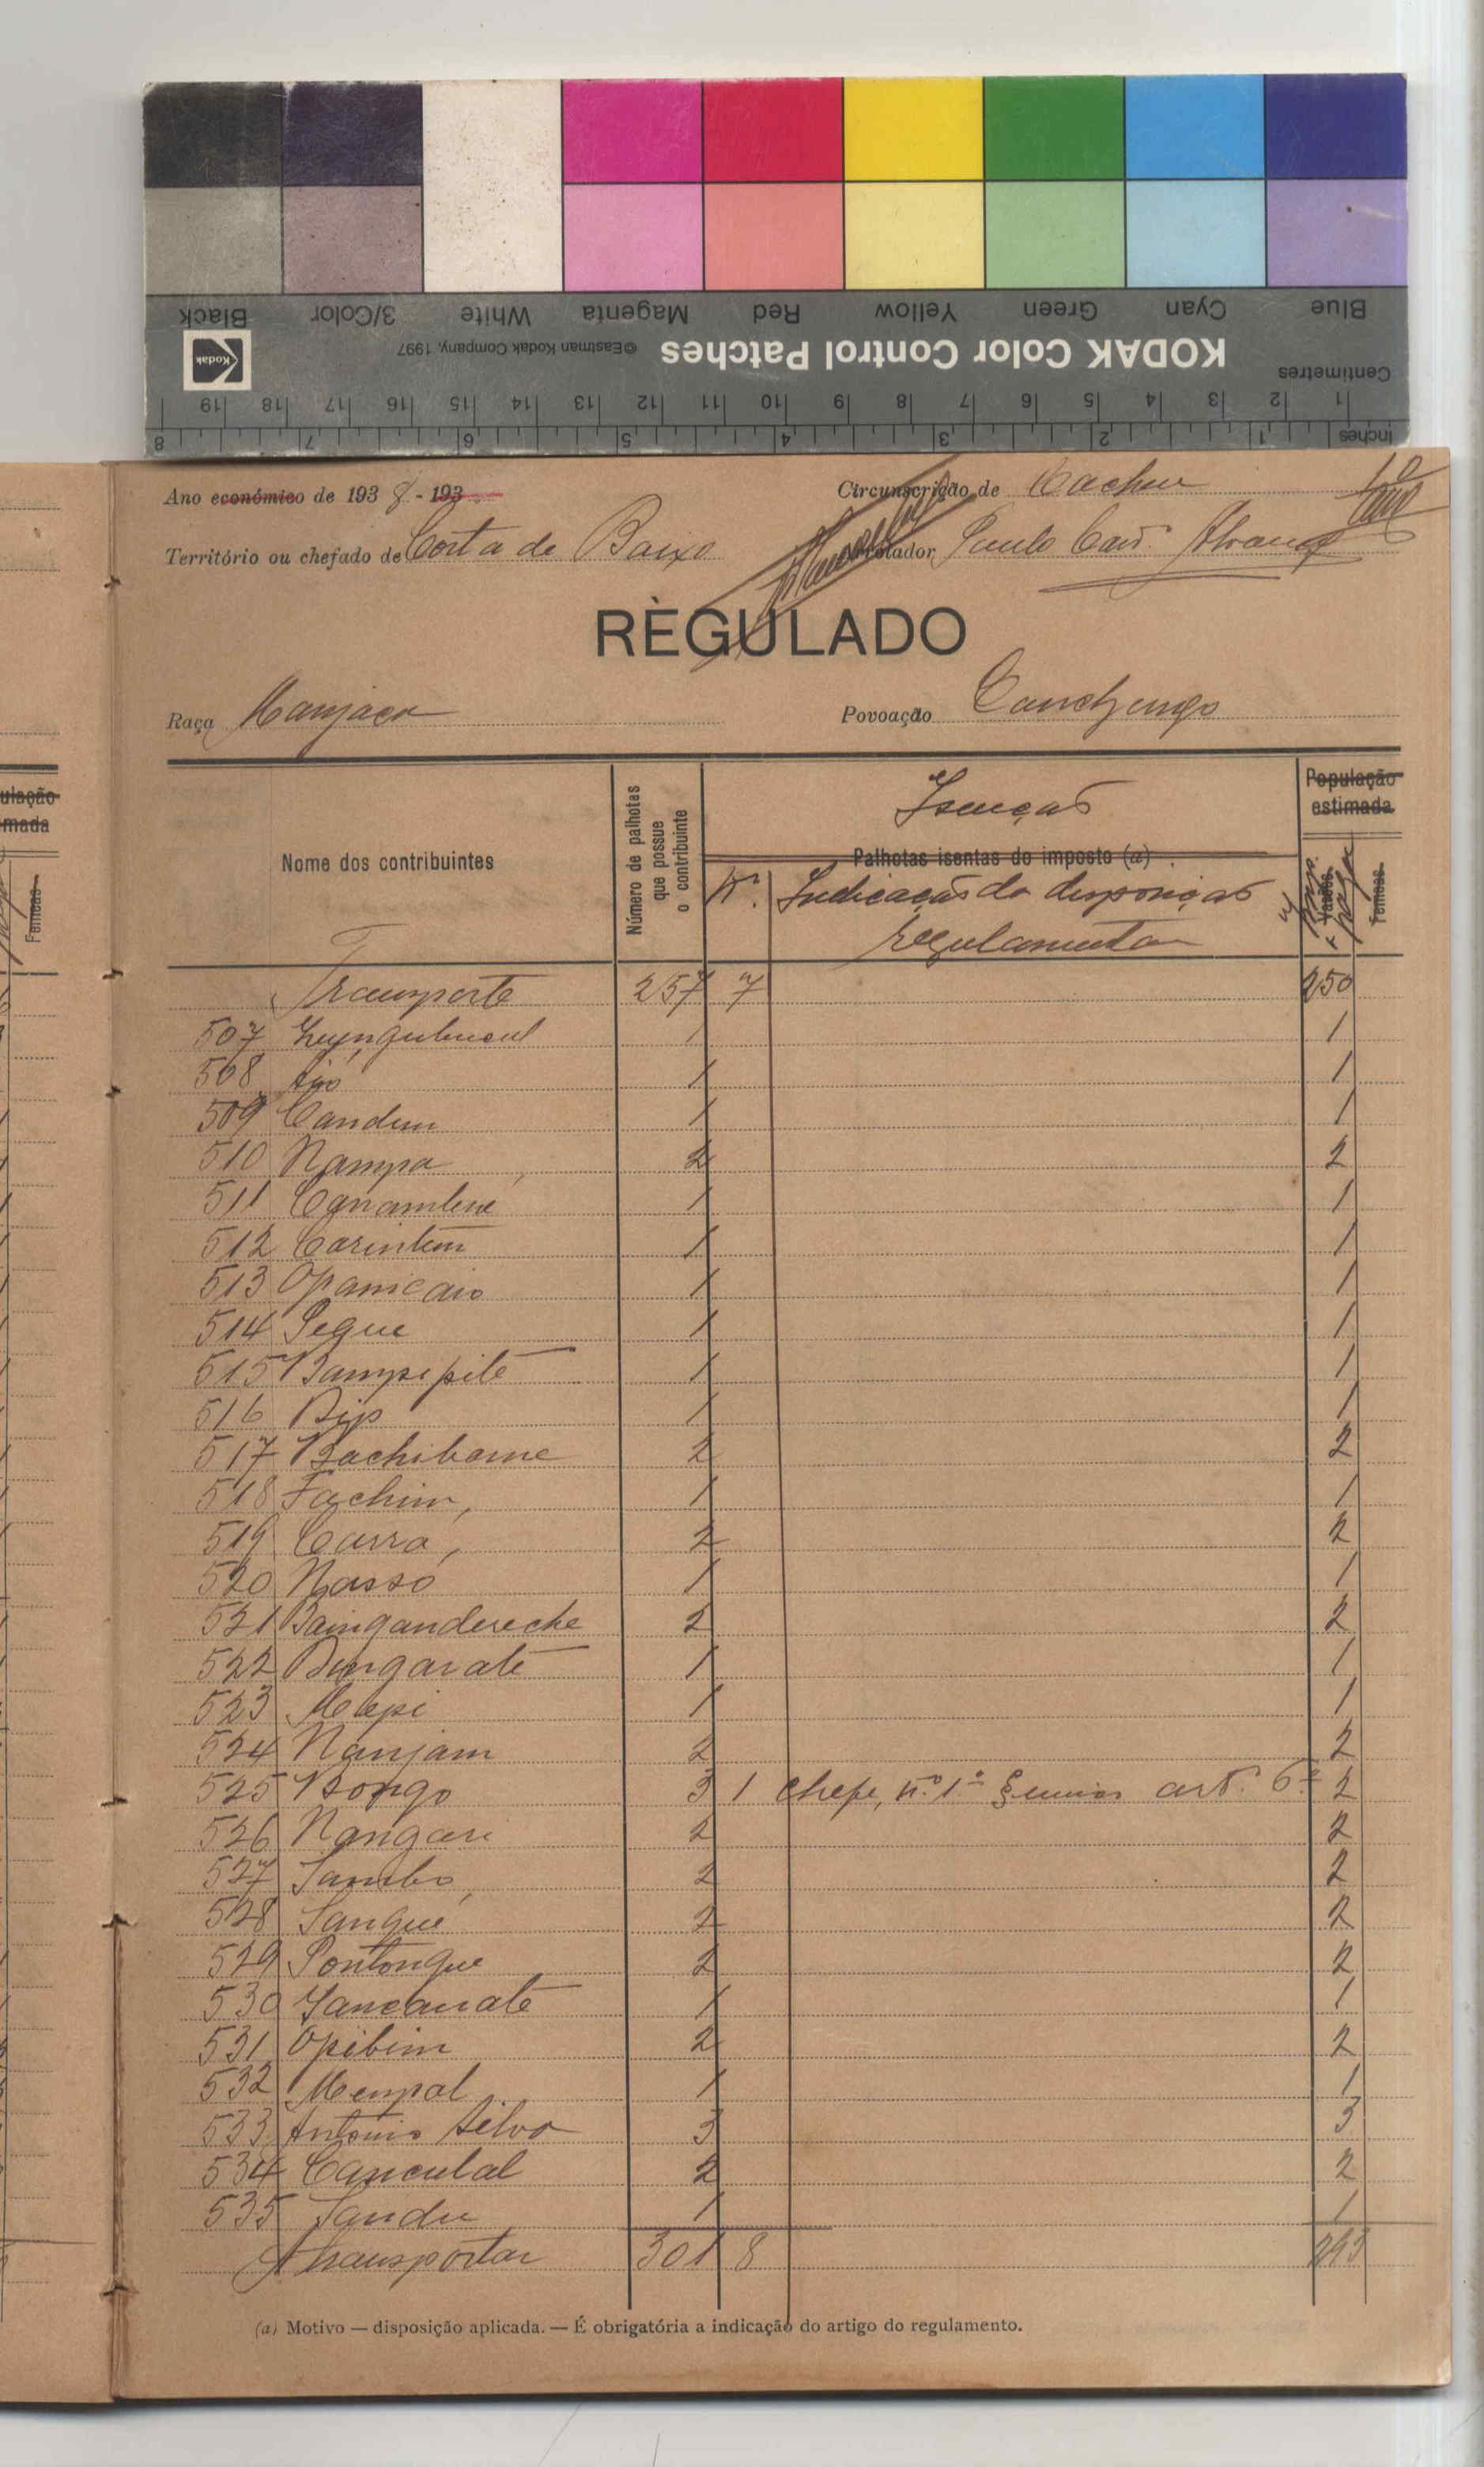 Black 3/Color White Magenta Red Yellow Green Cyan Blue
Kodak
©Eastman Kodak Company, 1997 KODAK Color Control Patches
Centimetres
19 18 17 16 15 14 13 12 11 10 9 8 7 6 5 4 3 2 1
8 7 6 5 4 3 2 1 Inches
Ano económico de 1938 - 193 Circunscrição de Cacheu
Território ou chefado de Costa de Baixo Paulo
RÈGULADO
Raça Manjaca Povoação Canchungo
Nome dos contribuintes
Número de palhotas que possue o contribuinte
Isenção
Palhotas isentas do imposto (a)
N.º Indicação da disposição
regulamentar
População
estimada
Femeas
ulação
mada
Femeas
Transporte 257 7 250
507 1 1
508 1 1
509 Candem 1 1
510 Nampa 2 2
511 1 1
512 Carintem 1 1
513 Opanicaio 1 1
514 Pegue 1 1
515 Bampipite 1 1
516 1 1
517 Bachibame 2 2
518 Fachim 1 1
519 Carra 2 2
520 Nasso 1 1
521 Baingandereche 2 2
522 Bingarate 1 1
523 Mepi 1 1
524 Nanjam 2 2
525 Bongo 3 1 Chefe, n.º 1.º art.º 6.º 2
526 Nangari 2 2
527 Sambo 2 2
528 Sanque 2 2
529 Pontongue 2 2
530 1 1
531 Opibim 2 2
532 Mempal 1 1
533 António Silva 3 3
534 Canculal 2 2
535 Sandu 1 1
A transportar 301 8 293
(a) Motivo — disposição aplicada. — É obrigatória a indicação do artigo do regulamento.